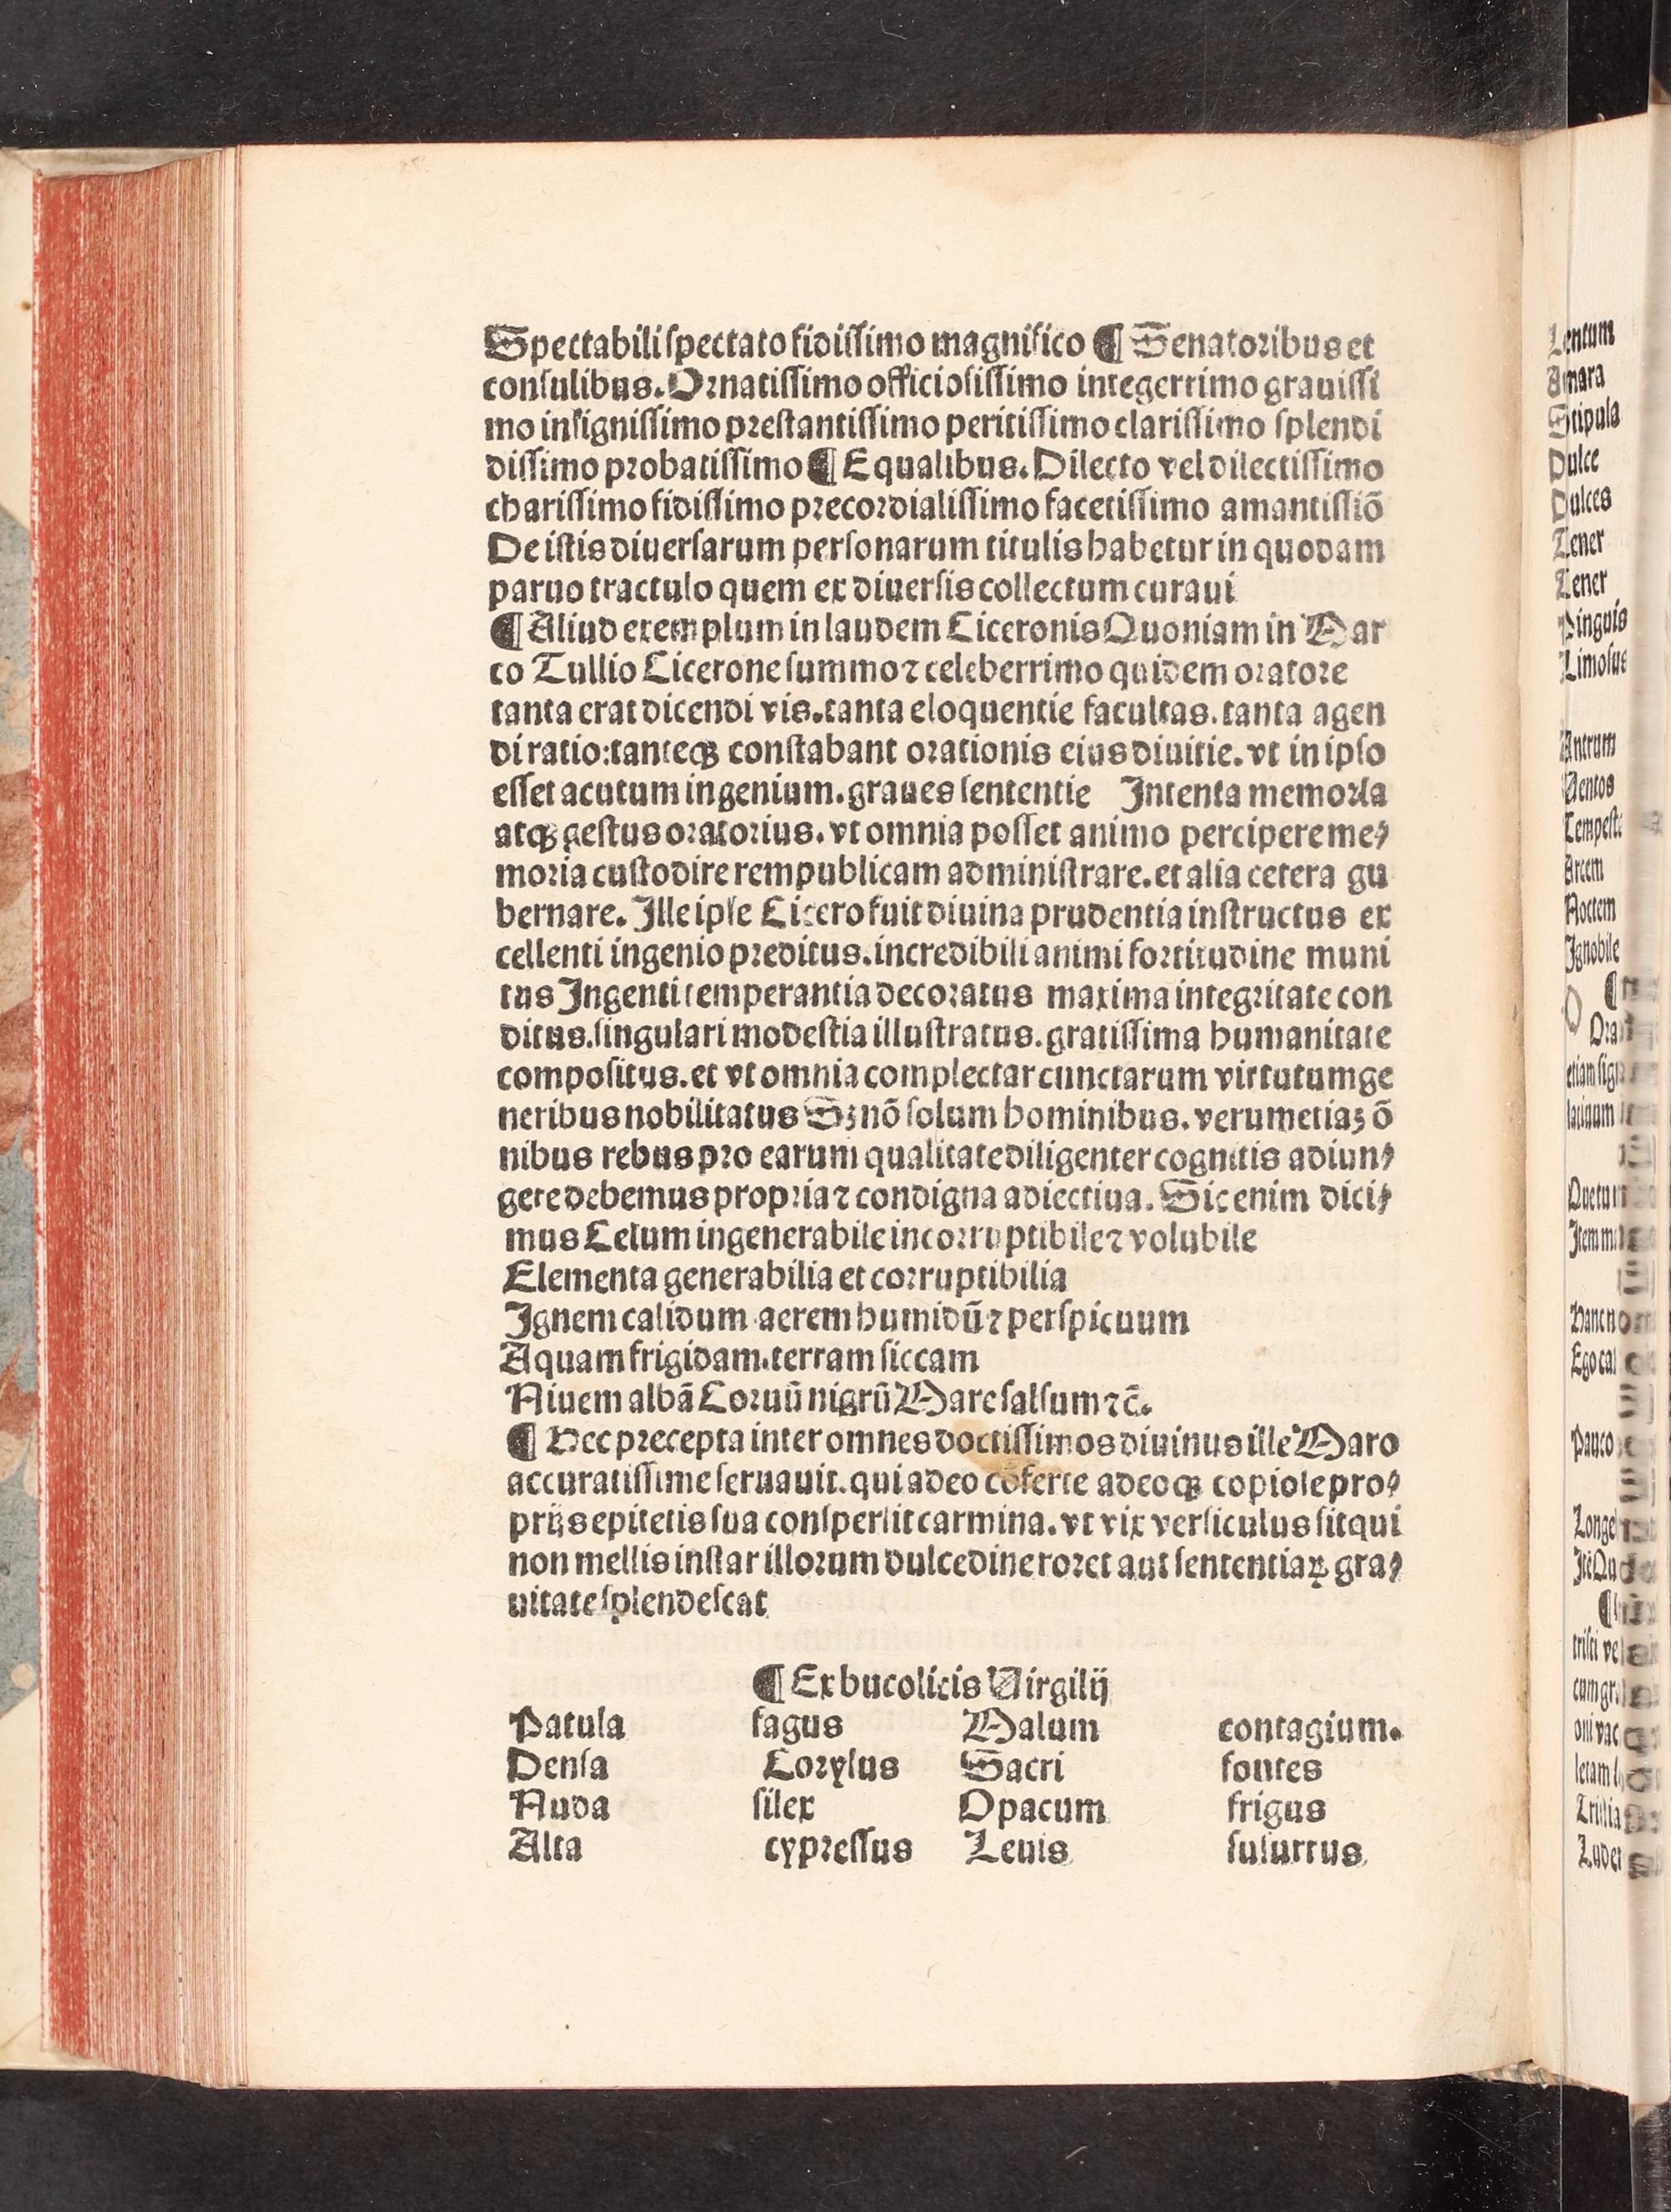 Spectabili spectato fidissimo magnifico ¶ Senatoribus et
consulibus. Ornatissimo officiosissimo integerrimo grauissi
mo insignissimo prestantissimo peritissimo clarissimo splendi
dissimo probatissimo ¶ Equalibus. Dilecto vel dilectissimo
charissimo fidissimo precordialissimo facetissimo amantissiō
De istis diuersarum personarum titulis habetur in quodam
paruo tractulo quem ex diuersis collectum curaui
¶ Aliud exemplum in laudem Ciceronis Quoniam in Mar
co Tullio Cicerone summo ⁊ celeberrimo quidem oratore
tanta erat dicendi vis. tanta eloquentie facultas. tanta agen
di ratio: tanteqꝫ constabant orationis eius diuitie. vt in ipso
esset acutum ingenium. graues sententie Intenta memoria
atqꝫ gestus oratorius. vt omnia posset animo percipere me⸗
moria custodire rempublicam administrare. et alia cetera gu
bernare. Ille ipse Cicero fuit diuina prudentia instructus ex
cellenti ingenio preditus. incredibili animi fortitudine muni
tus Ingenti temperantia decoratus maxima integritate con
ditus. singulari modestia illustratus. gratissima humanitate
compositus. et vt omnia complectar cunctarum virtutum ge
neribus nobilitatus Sꝫ nō solum hominibus. verumetiaꝫ ō
nibus rebus pro earum qualitate diligenter cognitis adiun⸗
gere debemus propria ⁊ condigna adiectiua. Sic enim dici⸗
mus Celum ingenerabile incorruptibile ⁊ volubile
Elementa generabilia et corruptibilia
Ignem calidum aerem humidū ⁊ perspicuum
Aquam frigidam. terram siccam
Niuem albā Coruū nigrū Mare salsum ⁊c̄.
¶ Hec precepta inter omnes doctissimos diuinus ille Maro
accuratissime seruauit. qui adeo cōferte adeoqꝫ copiose pro⸗
prijs epitetis sua conspersit carmina. vt vix versiculus sit qui
non mellis instar illorum dulcedine roret aut sententiaꝝ gra⸗
uitate splendescat
¶ Ex bucolicis Virgilij
Patula fagus Malum contagium.
Densa Corylus Sacri fontes
Nuda silex Opacum frigus
Alta cypressus Leuis susurrus
Lentum
Amara
Stipula
Dulce
Dulces
Tener
Tener
Pinguis
Limosus
Antrum
Ventos
Arcem
Noctem
Ignobile